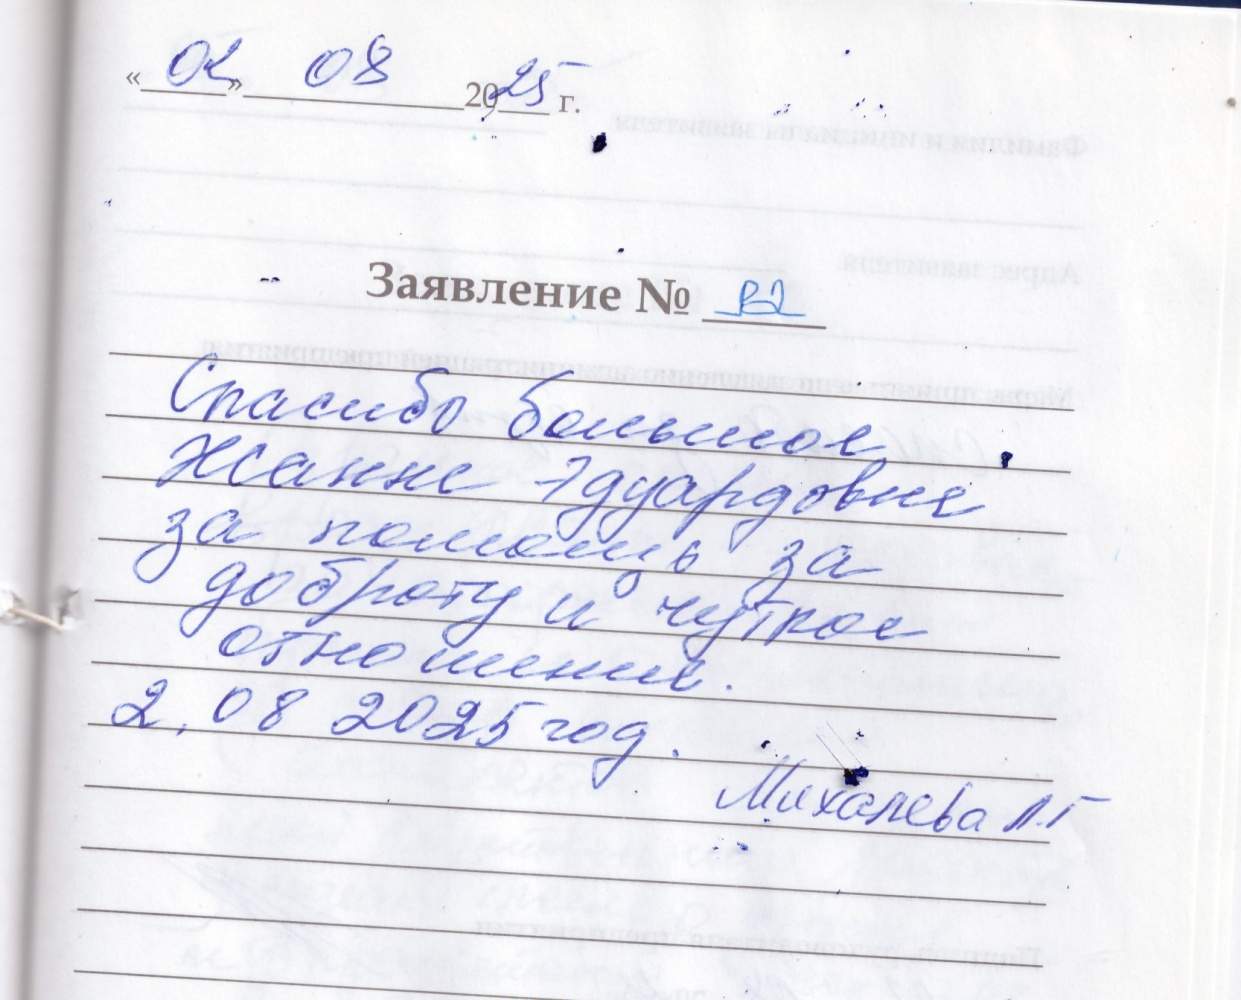 «02» 08 2025 г.
Заявление №
Спасибо большое
Жанне Эдуардовне
за помощь за
доброту и чуткое
отношение.
2. 08 2025 год.
Михалева Л.Г